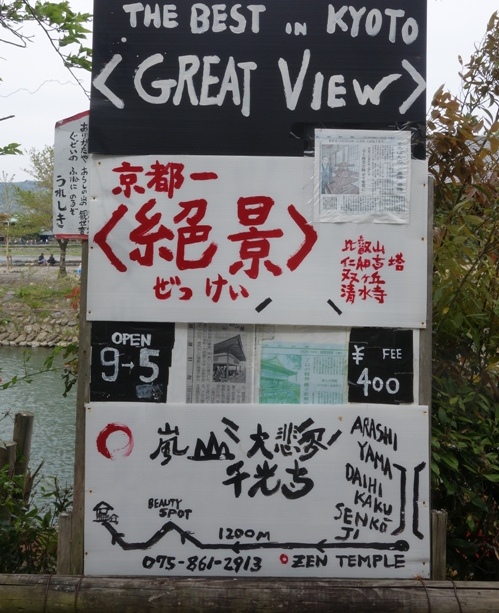 THE BEST IN KYOTO
<GREAT VIEW>
京都一
<絶景>
ぜっけい
比叡山
仁和寺塔
双ヶ丘
清水寺
うれしき
OPEN
9→5
¥ FEE
400
嵐山 大悲閣
千光寺
ARASHI
YAMA
DAIHI
KAKU
SENKŌ
JI
BEAUTY
SPOT
1200M
075-861-2913
ZEN TEMPLE